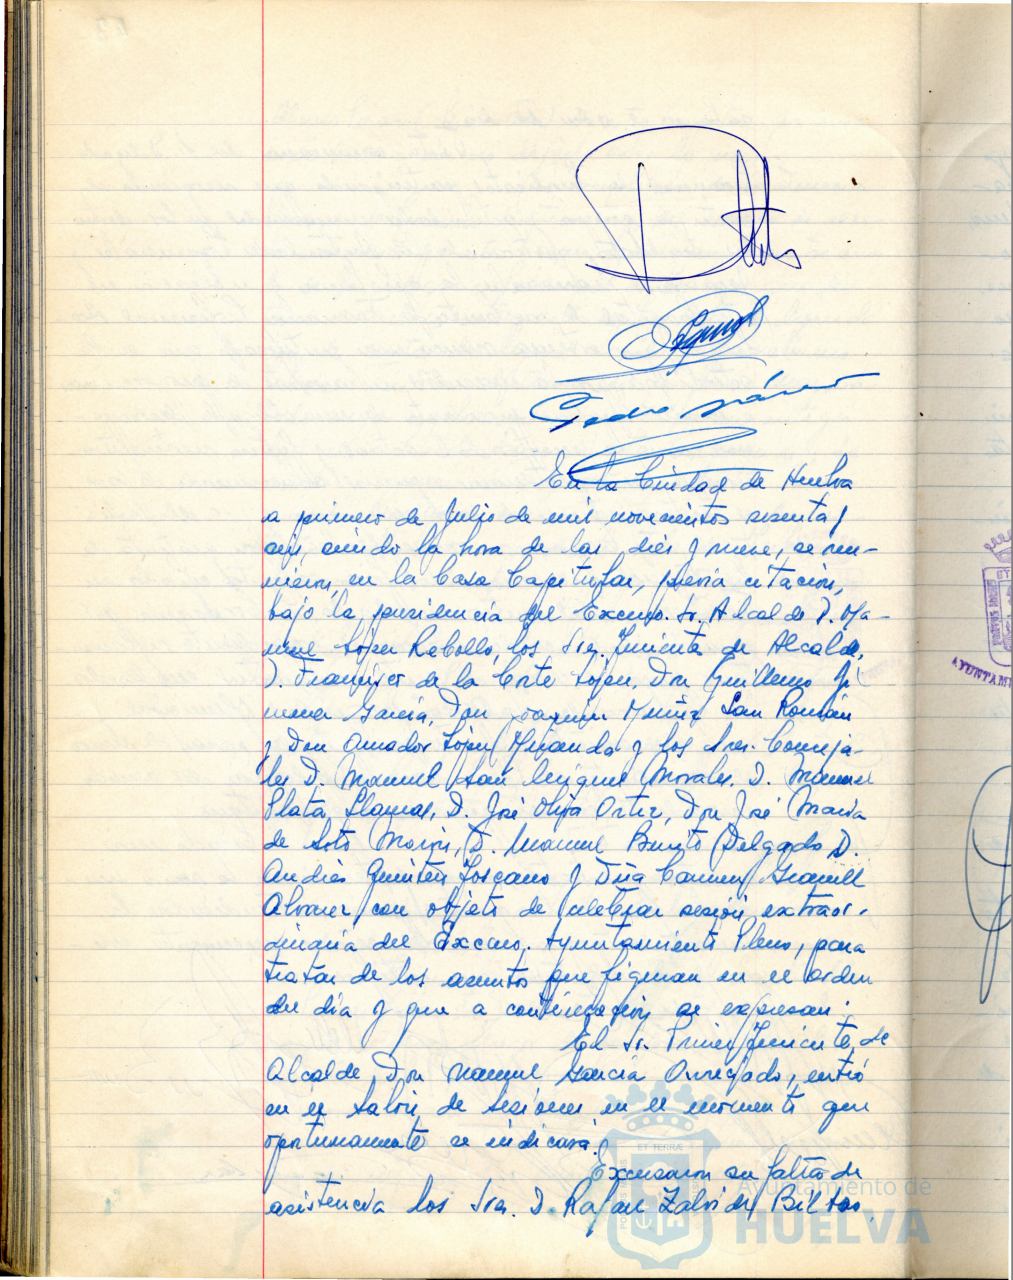 En la Ciudad de Huelva
a primero de Julio de mil novecientos sesenta y
seis, siendo la hora de las diez y nueve, se reu-
nieron, en la Casa Capitular, previa citación,
bajo la presidencia del Excmo. Sr. Alcalde D. Ma-
nuel López Rebollo, los Sres. Tenientes de Alcalde,
D. Francisco de la Corte López, Don Guillermo Ji-
menez García, Don Joaquin Muñiz San Román
y Don Amador López Miranda y los Sres. Conceja-
les D. Manuel San Miguel Morales, D. Manuel
Plata Llamas, D. José Oliva Ortiz, Don José María
de Soto Morón, D. Manuel Benito Delgado D.
Andrés Quintero Toscano y Dña Carmen
Alvarez con objeto de celebrar sesión extraor-
dinaria del Excmo. Ayuntamiento Pleno, para
tratar de los asuntos que figuran en el orden
del día y que a continuación se expresan.
El Sr. Primer Teniente de
Alcalde Don Manuel García Overgado, entró
en el Salón de Sesiones en el momento que
oportunamente se indicará.
Excusaron su falta de
asistencia los Sres. D. Rafael Zalvide Bilbao,
Ayuntamiento de
HUELVA